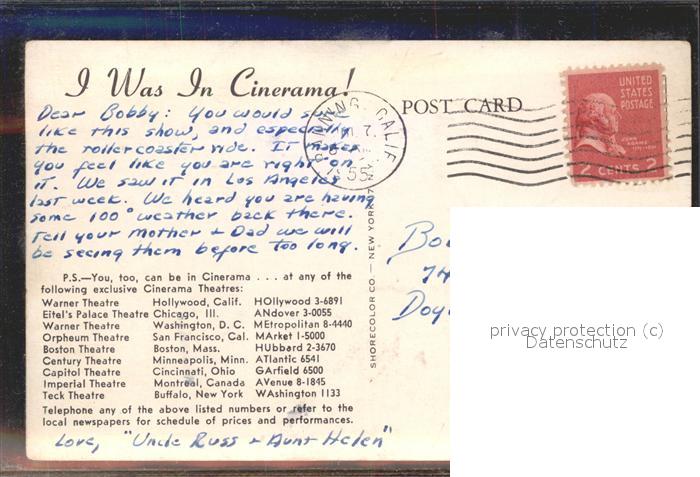 I Was In Cinerama!
POST CARD
Dear Bobby: You would sure
like this show, and especially
the rollercoaster ride. It makes
you feel like you are right on
it. We saw it in Los Angeles
last week. We heard you are having
some 100° weather back there.
Tell your Mother + Dad we will
be seeing them before too long.
P.S.—You, too, can be in Cinerama . . . at any of the
following exclusive Cinerama Theatres:
Warner Theatre Hollywood, Calif. HOllywood 3-6891
Eitel's Palace Theatre Chicago, Ill. ANdover 3-0055
Warner Theatre Washington, D. C. MEtropolitan 8-4440
Orpheum Theatre San Francisco, Cal. MArket 1-5000
Boston Theatre Boston, Mass. HUbbard 2-3670
Century Theatre Minneapolis, Minn. ATlantic 6541
Capitol Theatre Cincinnati, Ohio GArfield 6500
Imperial Theatre Montreal, Canada AVenue 8-1845
Teck Theatre Buffalo, New York WAshington 1133
Telephone any of the above listed numbers or refer to the
local newspapers for schedule of prices and performances.
Love, "Uncle Russ + Aunt Helen"
SHORECOLOR CO.— NEW YORK
CALIF
7
55
UNITED
STATES
POSTAGE
JOHN
ADAMS
2 CENTS 2
Bo
74
Doy
privacy protection (c)
Datenschutz